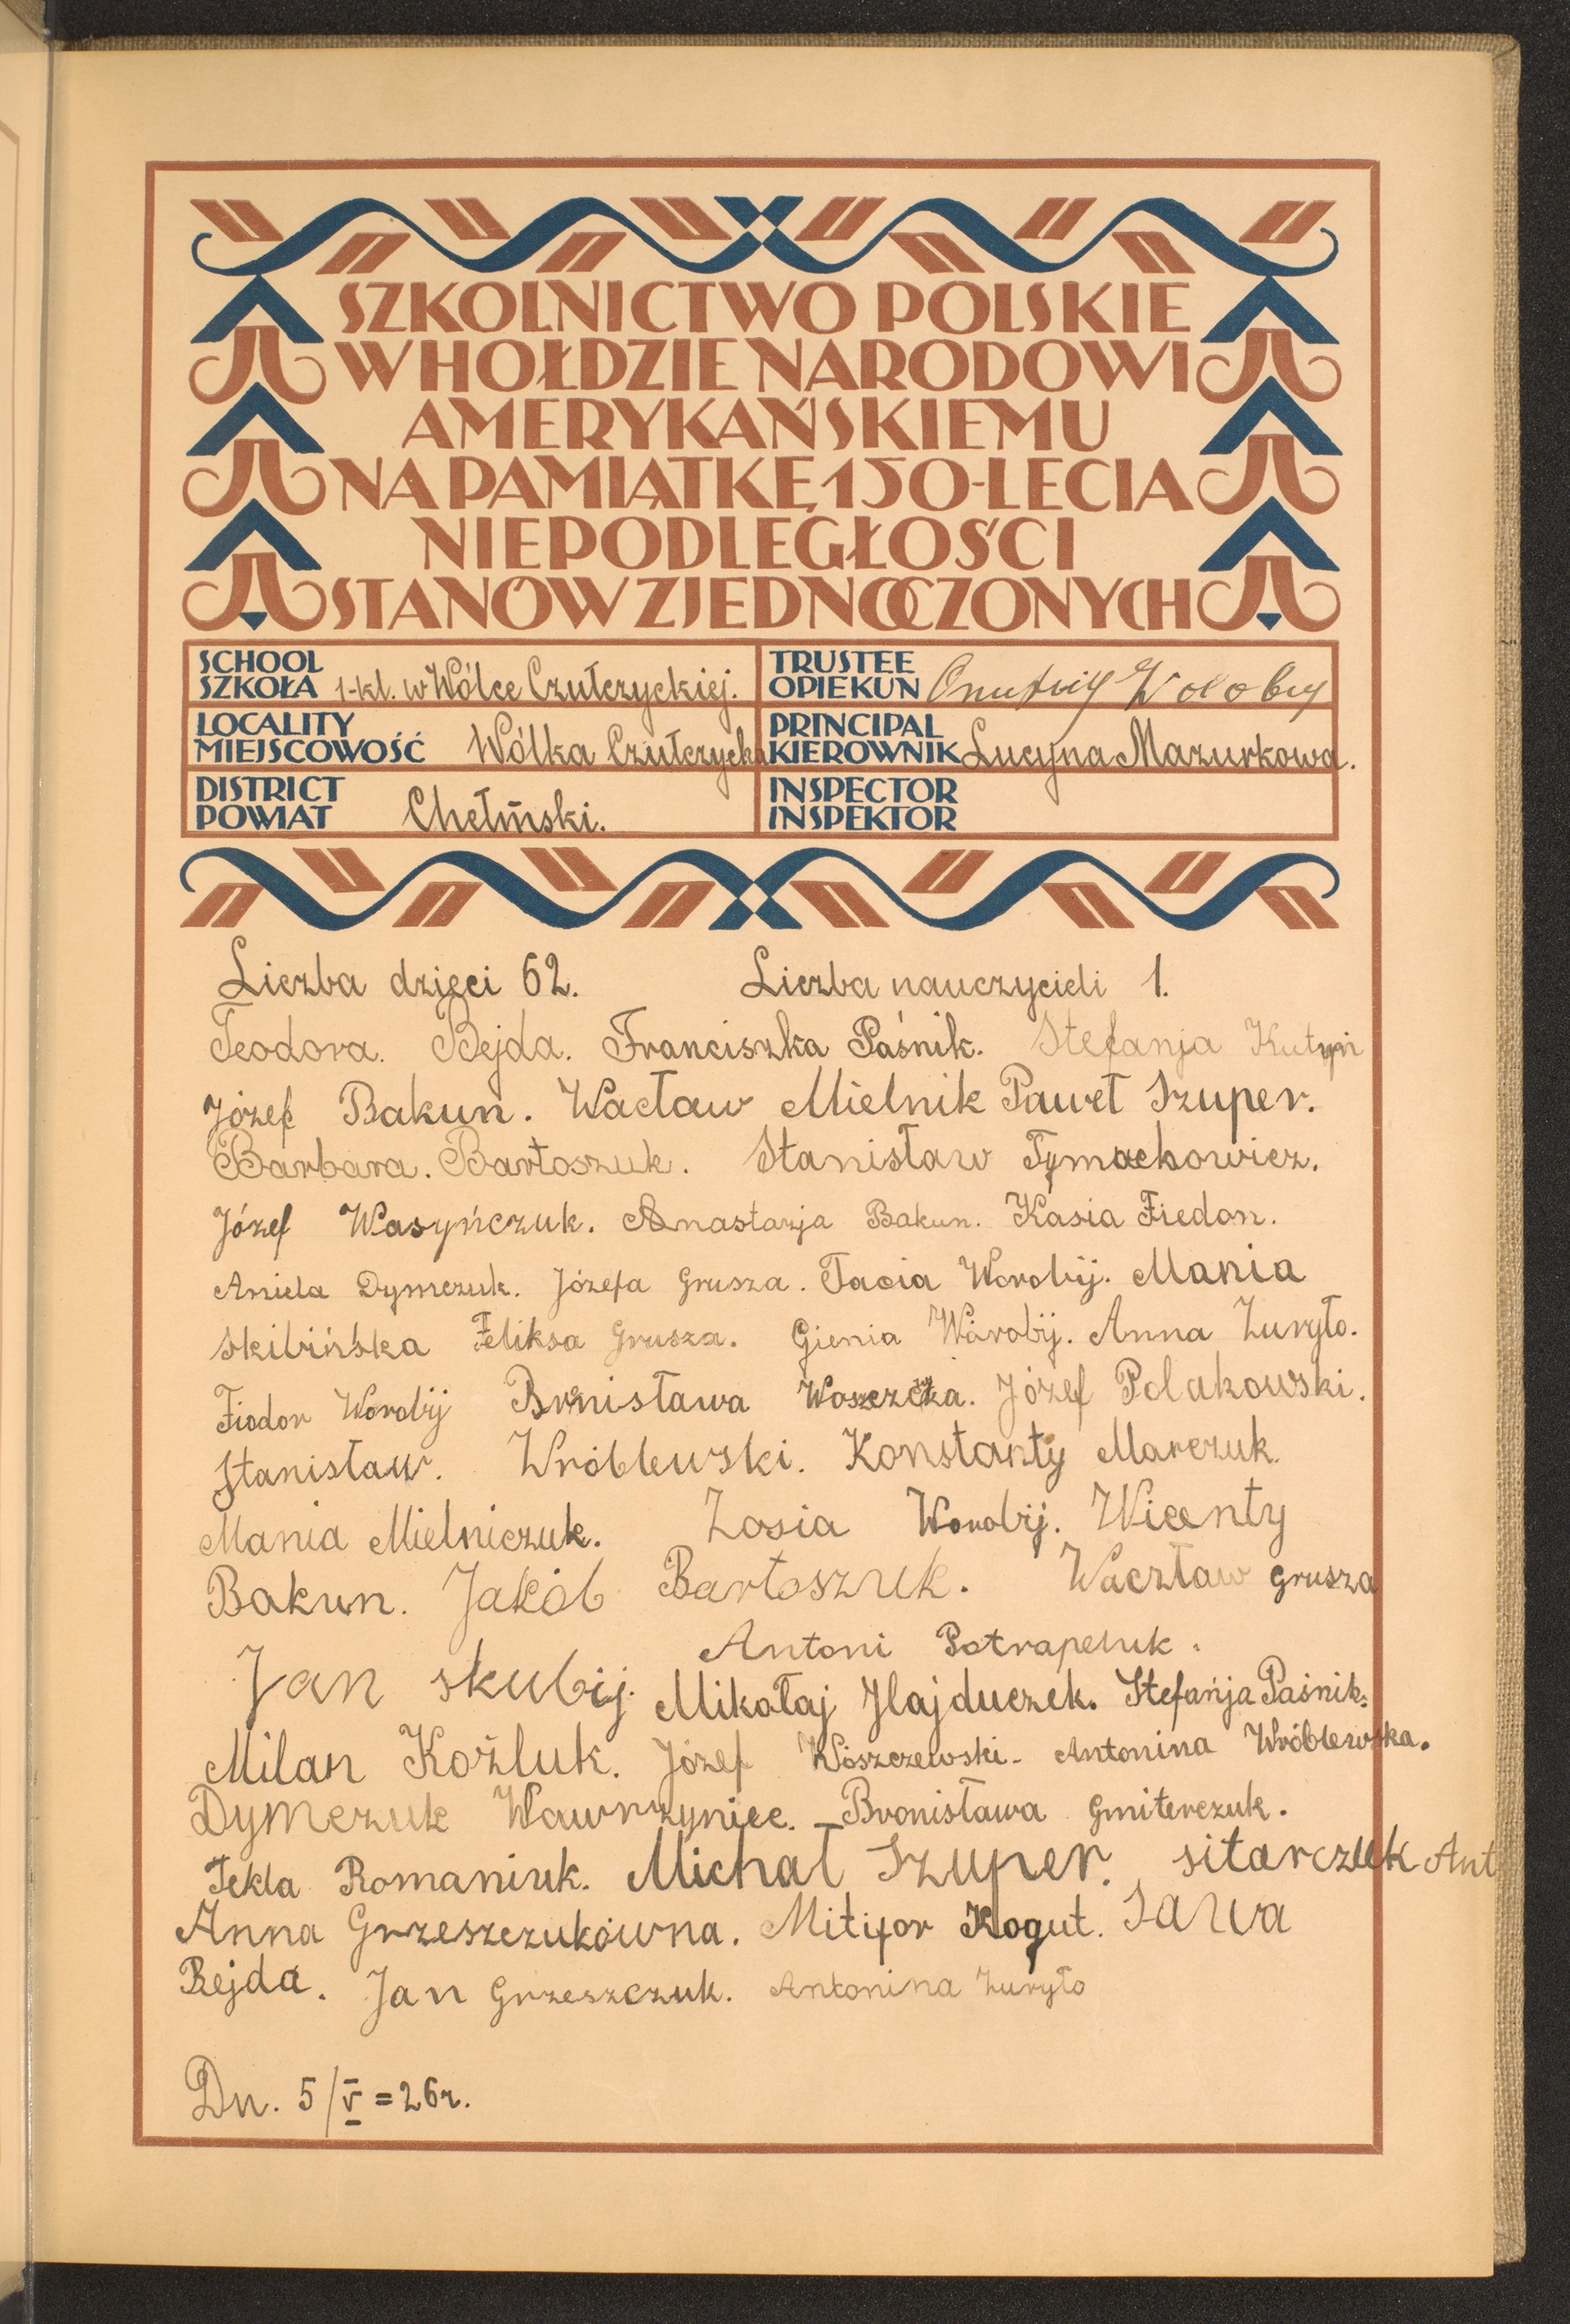 SZKOLNICTWO POLSKIE
W HOŁDZIE NARODOWI
AMERYKAŃSKIEMU
NA PAMIĄTKĘ 150-LECIA
NIEPODLEGŁOŚCI
STANÓW ZJEDNOCZONYCH
SCHOOL
SZKOŁA 1-kl. w Wólce Czułczyckiej.
TRUSTEE
OPIEKUN
LOCALITY
MIEJSCOWOŚĆ Wólka Czułczycka
PRINCIPAL
KIEROWNIK Lucyna Mazurkowa.
DISTRICT
POWIAT Chełmski.
INSPECTOR
INSPEKTOR
Liczba dzieci 62. Liczba nauczycieli 1.
Teodora. Bejda. Franciszka Paśnik. Stefanja
Józef Bakun. Wacław Mielnik Paweł Szuper.
Barbara. Bartoszuk. Stanisław Tymochowicz.
Józef Wasyńczuk. Anastazja Bakun. Kasia Fiedon.
Aniela Dymczuk. Józefa Grusza. Tacia Worobij. Mania
Skibińska Feliksa Grusza. Gienia Worobij. Anna Zuryło.
Fiodor Worobij Bronisława Józef Polakowski.
Stanisław. Wróblewski. Konstanty Marczuk.
Mania Mielniczuk. Zosia Worobij. Wicenty
Bakun. Jakób Bartoszuk. Wacztaw Grusza
Antoni Potrapeluk.
Jan skubij. Mikołaj Hajduczek. Stefanja Paśnik.
Milan Koźluk. Józef Woszczewski. Antonina Wróblewska.
Dymczuk Wawrzyniec. Bronisława Gmiterczuk.
Tekla Romaniuk. Michał Szuper. sitarczuk Ant
Anna Grzeszczukówna. Mitifor Kogut. Sawa
Bejda. Jan Grzeszczuk. Antonina Zuryło
Dn. 5/V=26r.